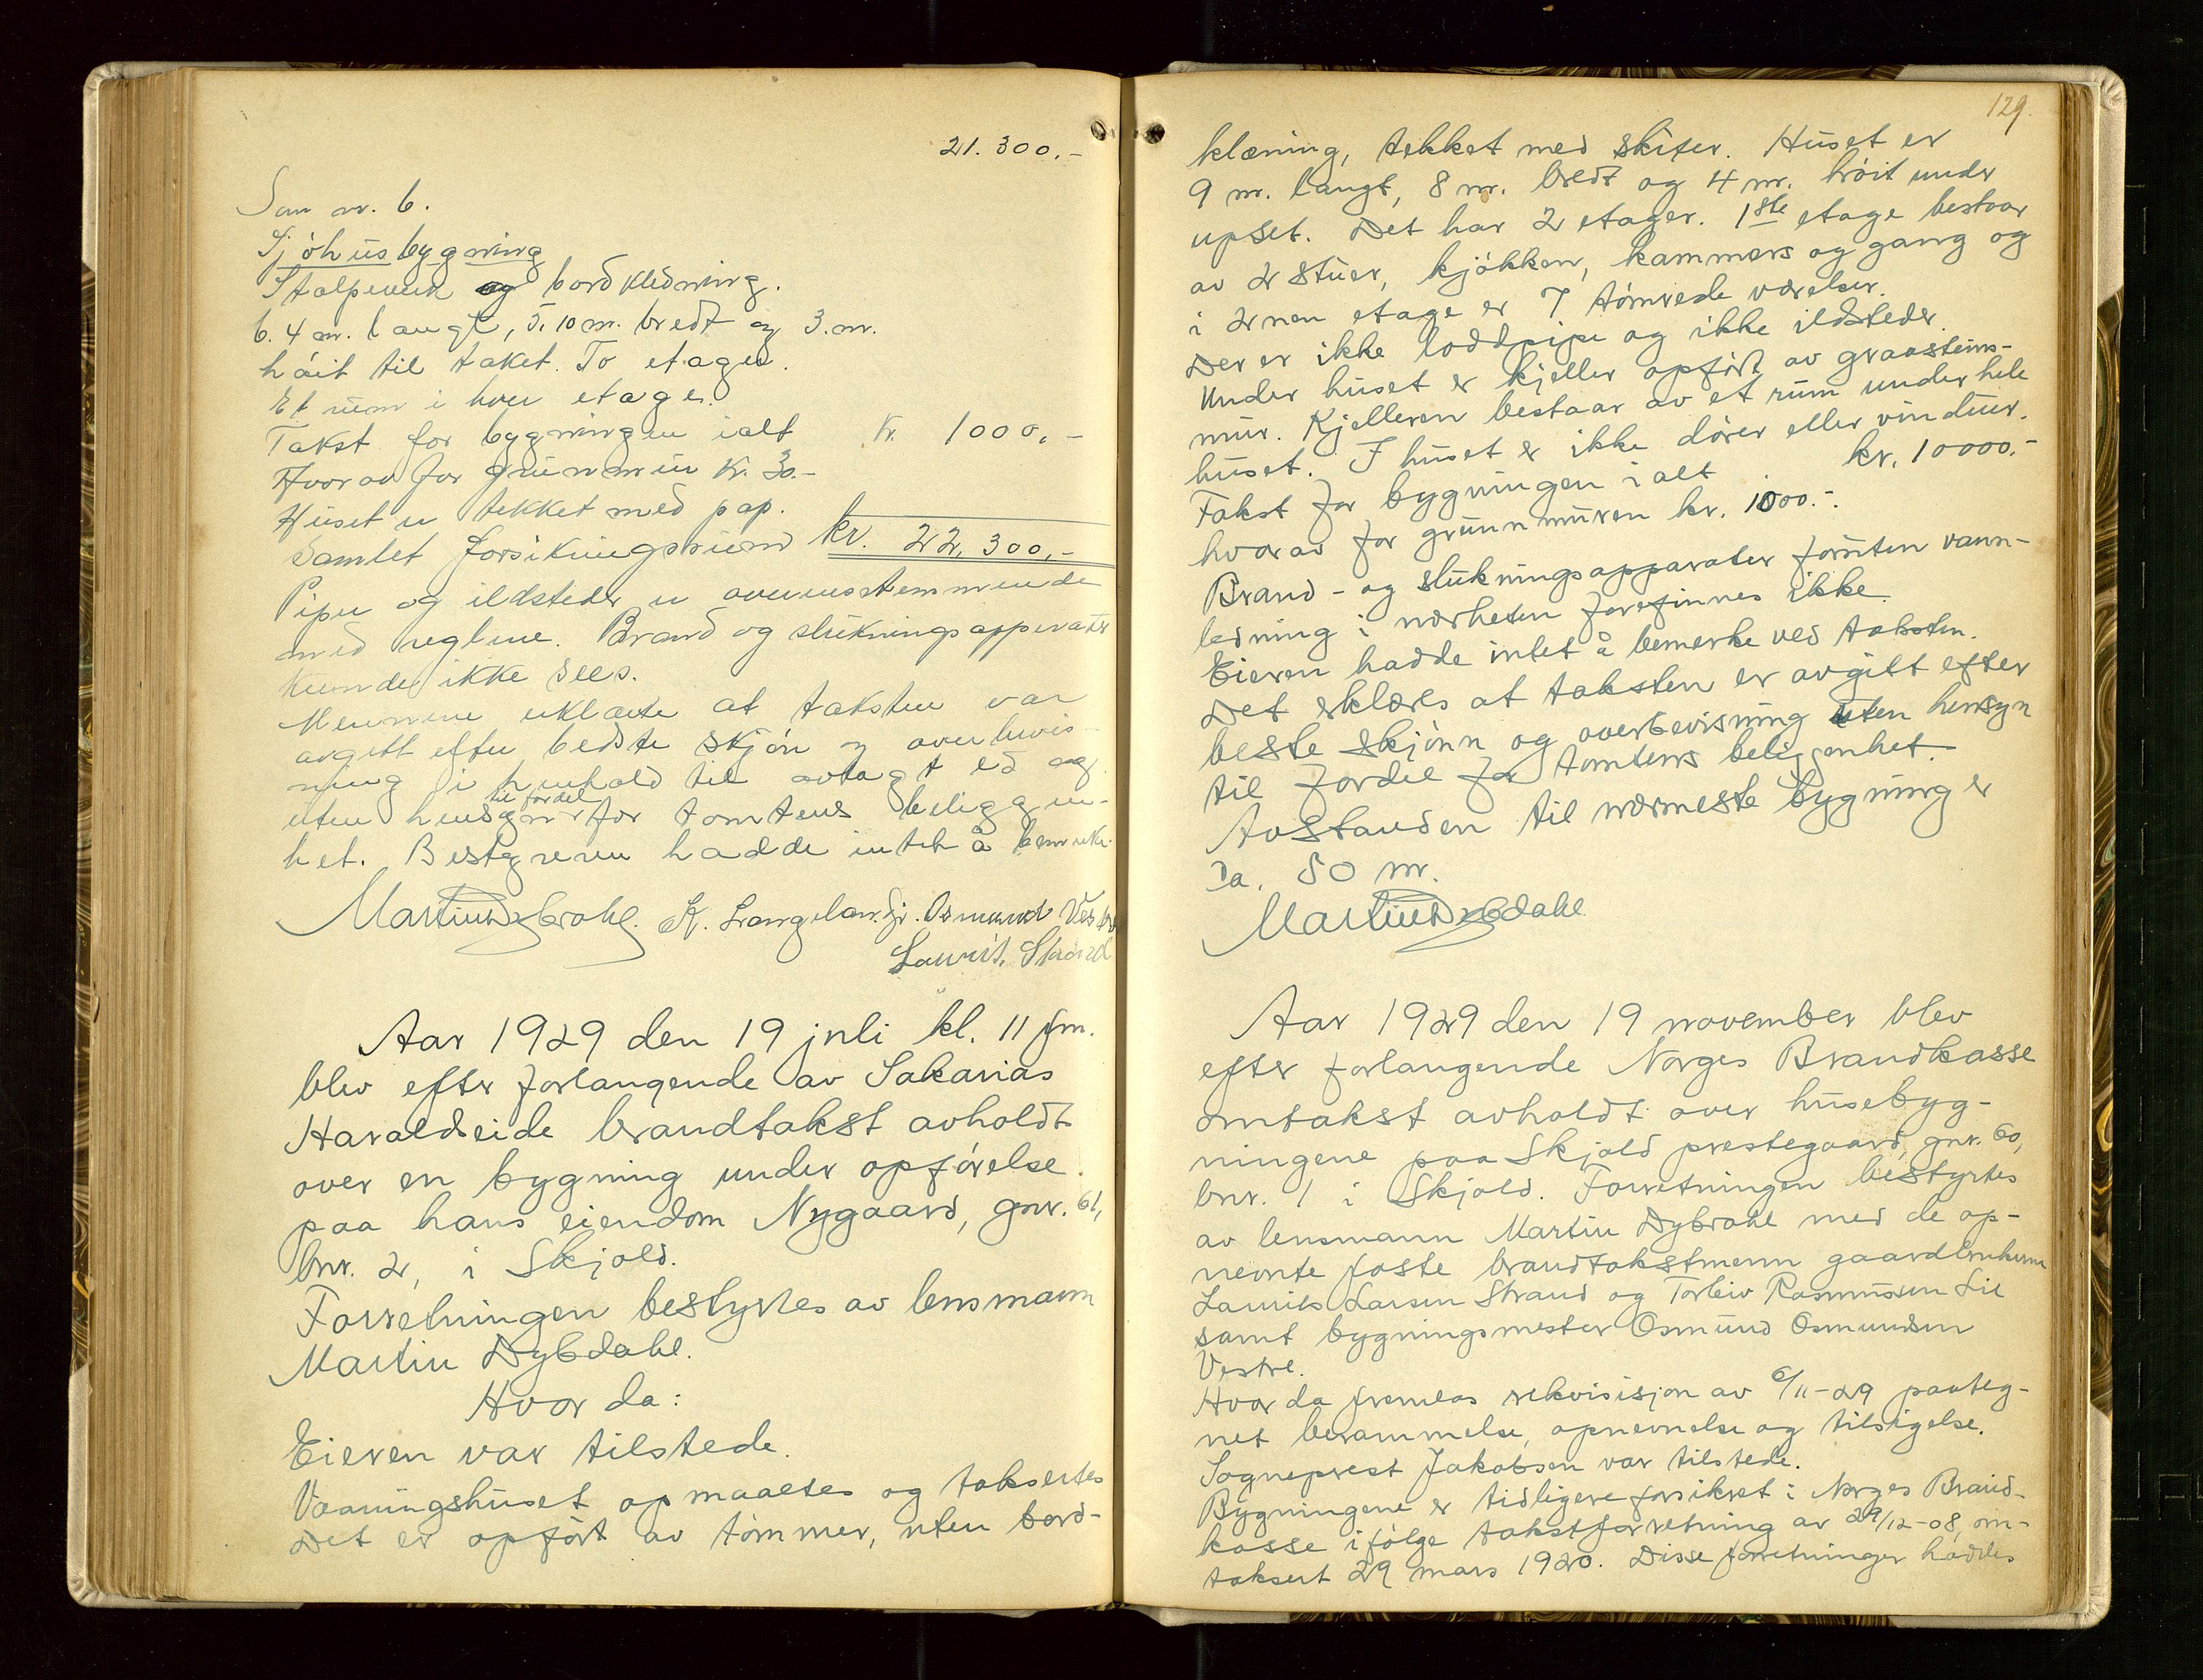 21.300.-
Som nr. 6.
Sjøhusbygning
Stolpeverk og bordkledning.
6.4 m. langt, 5.10 m. bredt og 3. m.
høit til taket. To etager.
Et rum i hver etage.
Takst for bygningen ialt kr. 1000.-
Hvorav for grunnmur kr. 30.-
Huset er tekket med pap.
Samlet forsikringssum kr. 22.300.-
Piper og ildsteder er overensstemmende
med reglene. Brand og slukningsapperater
kunde ikke sees.
Mennene erklærte at taksten var
avgitt efter bedste skjøn og overbevis-
ning i henhold til avlagt ed og
uten hensyn til fordel for tomtens beliggen-
het. Bestyreren hadde intet å bemerke.
Martin Dybdahl. K. Langeland jr. Osmund Vestre
Laurits Strand
Aar 1929 den 19 juli kl. 11 fm.
blev efter forlangende av Sakarias
Haraldseide brandtakst avholdt
over en bygning under opførelse
paa hans eiendom Nygaard, gnr. 61,
bnr. 2, i Skjold.
Forretningen bestyrtes av lensmann
Martin Dybdahl.
Hvor da:
Eieren var tilstede.
Vaaningshuset opmaaltes og taksertes
Det er opført av tømmer, uten bord-
129.
klæning, tekket med skifer. Huset er
9 m. langt, 8 m. bredt og 4 m. høit under
upset. Det har 2 etager. 1ste etage bestaar
av 2 stuer, kjøkken, kammers og gang og
i 2nen etage er 7 tømrede værelser.
Der er ikke loddpipe og ikke ildsteder.
Under huset er kjeller opført av graasteins-
mur. Kjelleren bestaar av et rum under hele
huset. I huset er ikke dører eller vinduer.
Takst for bygningen i alt kr. 10000.-
hvorav for grunnmuren kr. 1000.-.
Brand- og slukningsapparater foruten vann-
ledning i nærheten forefinnes ikke.
Eieren hadde intet å bemerke ved taksten.
Det erklæres at taksten er avgitt efter
beste skjønn og overbevisning uten hensyn
til fordel for tomtens beliggenhet.
Avstanden til nærmeste bygning er
ca. 50 m.
Martin Dybdahl
Aar 1929 den 19 november blev
efter forlangende Norges Brandkasse
omtakst avholdt over husebyg-
ningene paa Skjold prestegaard, gnr. 60,
bnr. 1 i Skjold. Forretningen bestyrtes
av lensmann Martin Dybdahl med de op-
nevnte faste brandtakstmenn gaardbrukerne
Laurits Larsen Strand og Torleiv Rasmussen Lie
samt bygningsmester Osmund Osmundsen
Vestre.
Hvor da fremlas rekvisisjon av 6/11-29 paateg-
net berammelse, opnevnelse og tilsigelse.
Sogneprest Jakobsen var tilstede.
Bygningene er tidligere forsikret i Norges Brand-
kasse ifølge takstforretning av 29/12-08, om-
taksert 29 mars 1920. Disse forretninger haddes